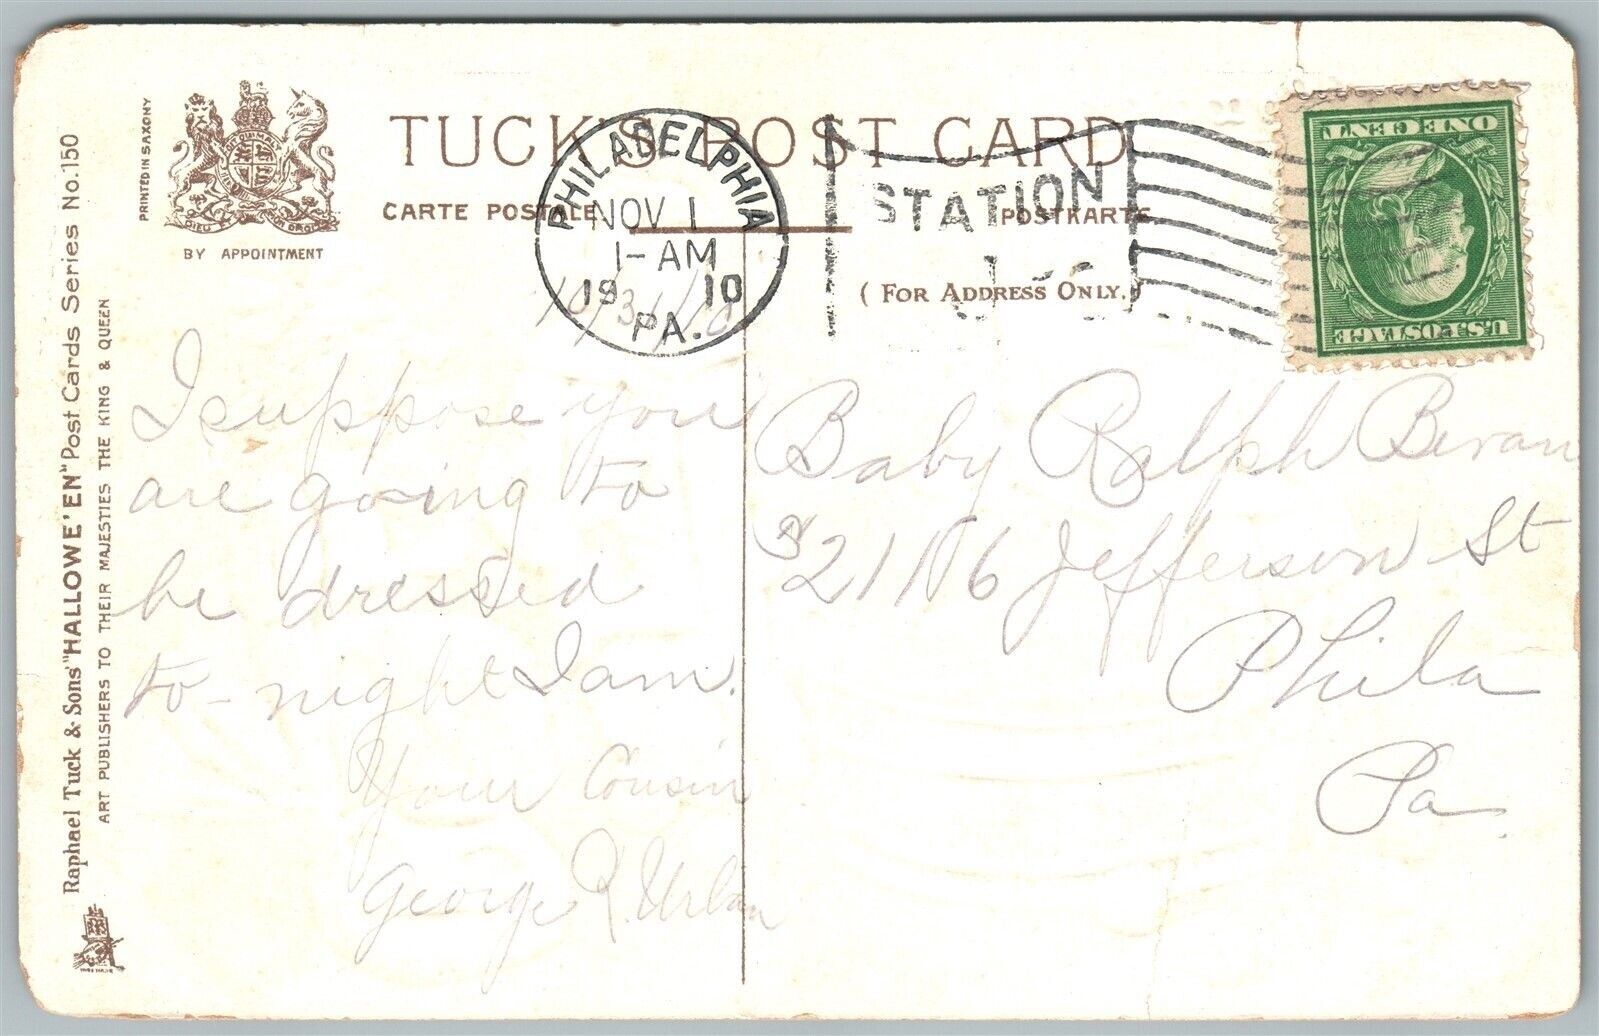 PRINTED IN SAXONY
DIEU ET MON DROIT
BY APPOINTMENT
Raphael Tuck & Sons' "HALLOWE'EN" Post Cards Series No. 150
ART PUBLISHERS TO THEIR MAJESTIES THE KING & QUEEN
TUCK'S POST CARD
CARTE POSTALE
POSTKARTE
( FOR ADDRESS ONLY. )
PHILADELPHIA
NOV 1
1-AM
1910
PA.
STATION
J
U.S. POSTAGE
ONE CENT
10/31/10
I suppose you
are going to
be dressed
to-night I am.
Your Cousin
George R. Urban
Baby Ralph Bevan
Jefferson St
Phila
Pa.